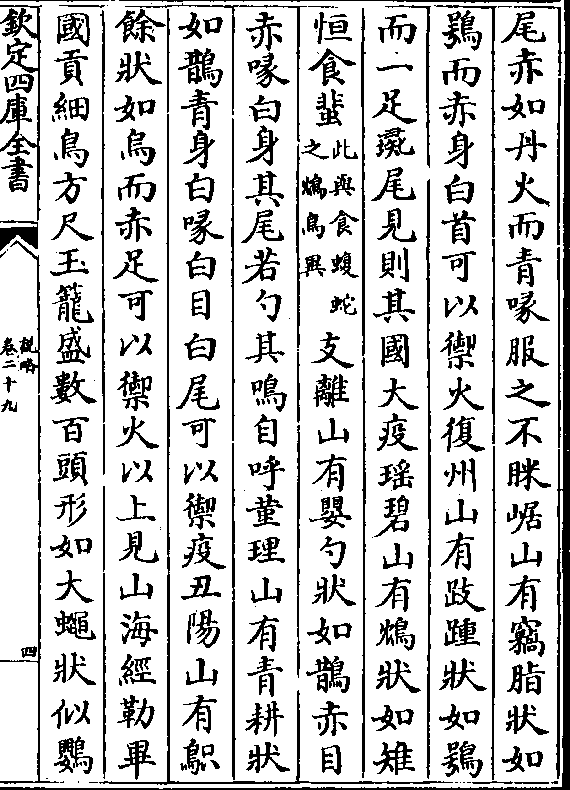 尾赤如丹火而青喙服之不眯崌山有竊脂狀如
鴞而赤身白首可以禦火復州山有跂踵狀如鴞
而一足彘尾見則其國大疫瑶碧山有鴆狀如雉
恒食蜚此與食蝮蛇之鴆鳥異支離山有嬰勺狀如鵲赤目
赤喙白身其尾若勺其鳴自呼菫理山有青耕狀
如鵲青身白喙白目白尾可以禦疫丑陽山有䳅
餘狀如烏而赤足可以禦火以上見山海經勒畢
國貢細鳥方尺玉籠盛數百頭形如大蠅狀似鸚
欽定四庫全書
說略
卷二十九
四